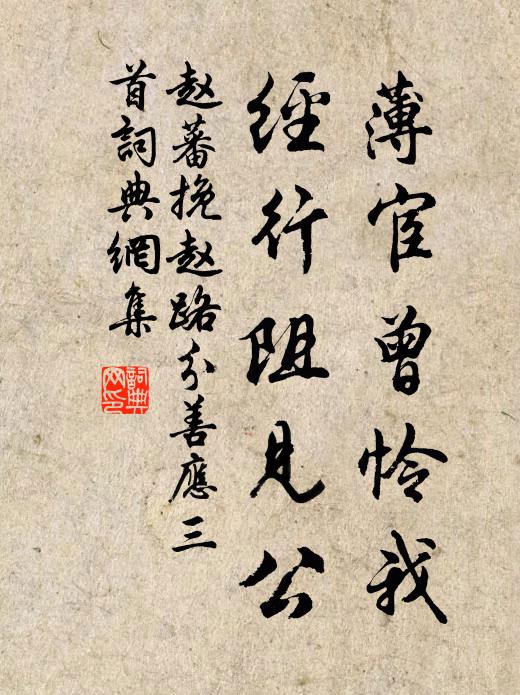 薄宦曾怜我
經行阻見公
赵蕃挽赵路分善應三
首詞典網集
詞典
网印